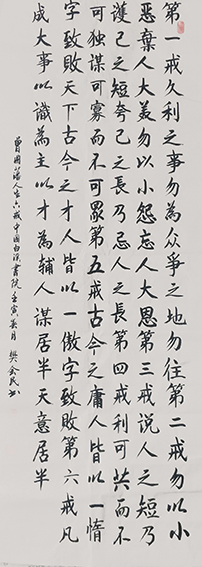 第一戒久利之事勿為众爭之地勿往第二戒勿以小
惡棄人大美勿以小怨忘人大恩第三戒說人之短乃
護己之短夸己之長乃忌人之長第四戒利可共而不
可独謀可寡而不可眾第五戒古今之庸人皆以一惰
字致敗天下古今之才人皆以一傲字致敗第六戒凡
成大事以識為主以才為輔人謀居半天意居半
曾國藩人生六戒中国白溪書院壬寅月樊民书